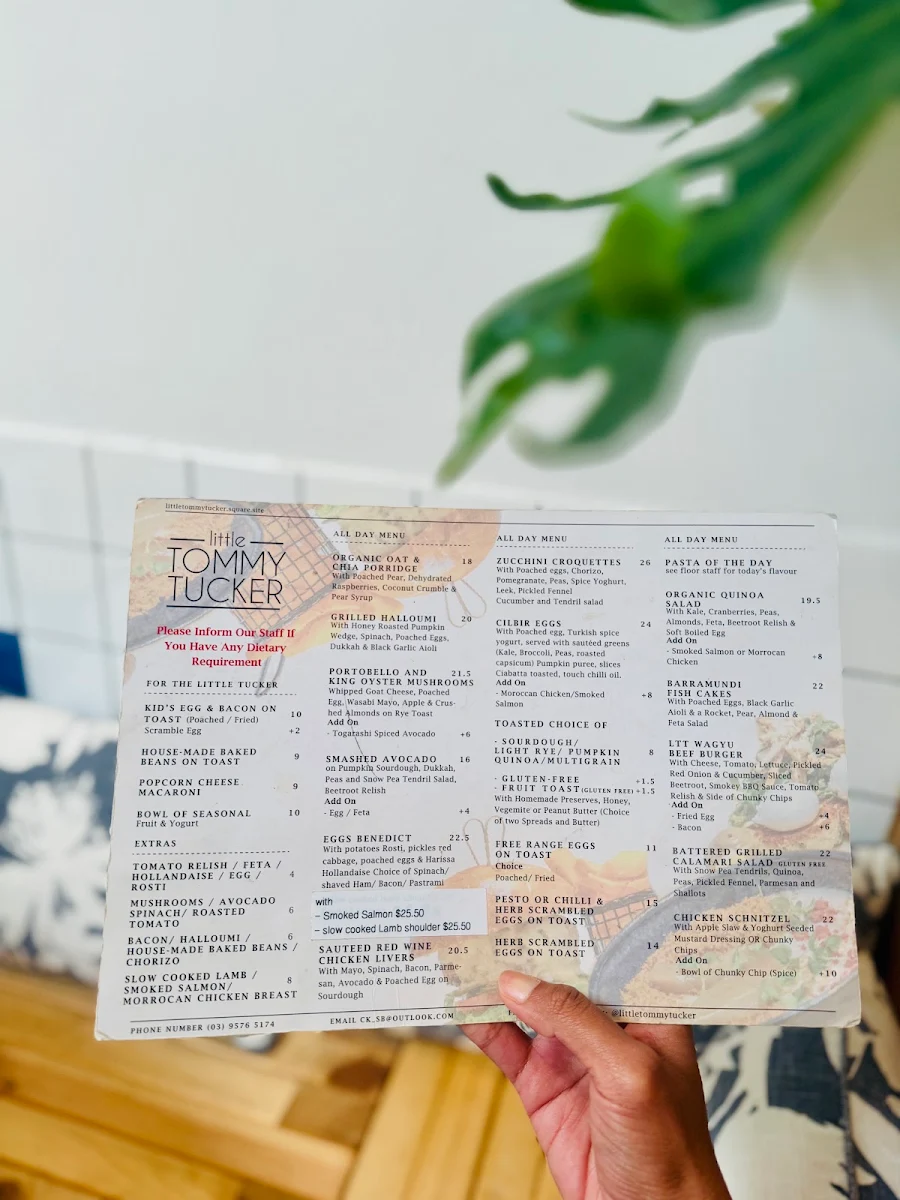 littletommytucker.square.site
little
TOMMY
TUCKER
Please Inform Our Staff If
You Have Any Dietary
Requirement
FOR THE LITTLE TUCKER
KID'S EGG & BACON ON 10
TOAST (Poached / Fried)
Scramble Egg +2
HOUSE-MADE BAKED 9
BEANS ON TOAST
POPCORN CHEESE 9
MACARONI
BOWL OF SEASONAL 10
Fruit & Yogurt
EXTRAS
TOMATO RELISH / FETA /
HOLLANDAISE / EGG / 4
ROSTI
MUSHROOMS / AVOCADO
SPINACH/ ROASTED 6
TOMATO
BACON/ HALLOUMI / 6
HOUSE-MADE BAKED BEANS /
CHORIZO
SLOW COOKED LAMB / 8
SMOKED SALMON/
MOROCCAN CHICKEN BREAST
PHONE NUMBER (03) 9576 5174
ALL DAY MENU
ORGANIC OAT & 18
CHIA PORRIDGE
With Poached Pear, Dehydrated
Raspberries, Coconut Crumble &
Pear Syrup
GRILLED HALLOUMI 20
With Honey Roasted Pumpkin
Wedge, Spinach, Poached Eggs,
Dukkah & Black Garlic Aioli
PORTOBELLO AND 21.5
KING OYSTER MUSHROOMS
Whipped Goat Cheese, Poached
Egg, Wasabi Mayo, Apple & Crus-
hed Almonds on Rye Toast
Add On
- Togarashi Spiced Avocado +6
SMASHED AVOCADO 16
on Pumpkin Sourdough, Dukkah,
Peas and Snow Pea Tendril Salad,
Beetroot Relish
Add On
- Egg / Feta +4
EGGS BENEDICT 22.5
With potatoes Rosti, pickles red
cabbage, poached eggs & Harissa
Hollandaise Choice of Spinach/
shaved Ham/ Bacon/ Pastrami
with
– Smoked Salmon $25.50
– slow cooked Lamb shoulder $25.50
SAUTEED RED WINE 20.5
CHICKEN LIVERS
With Mayo, Spinach, Bacon, Parme-
san, Avocado & Poached Egg on
Sourdough
EMAIL CK_SB@OUTLOOK.COM
ALL DAY MENU
ZUCCHINI CROQUETTES 26
With Poached eggs, Chorizo,
Pomegranate, Peas, Spice Yoghurt,
Leek, Pickled Fennel
Cucumber and Tendril salad
CILBIR EGGS 24
With Poached egg, Turkish spice
yogurt, served with sautéed greens
(Kale, Broccoli, Peas, roasted
capsicum) Pumpkin puree, slices
Ciabatta toasted, touch chilli oil.
Add On
- Moroccan Chicken/Smoked +8
Salmon
TOASTED CHOICE OF
- SOURDOUGH/
LIGHT RYE/ PUMPKIN 8
QUINOA/MULTIGRAIN
- GLUTEN-FREE +1.5
- FRUIT TOAST(GLUTEN FREE) +1.5
With Homemade Preserves, Honey,
Vegemite or Peanut Butter (Choice
of two Spreads and Butter)
FREE RANGE EGGS 11
ON TOAST
Choice
Poached/ Fried
PESTO OR CHILLI & 15
HERB SCRAMBLED
EGGS ON TOAST
HERB SCRAMBLED 14
EGGS ON TOAST
ALL DAY MENU
PASTA OF THE DAY
see floor staff for today's flavour
ORGANIC QUINOA 19.5
SALAD
With Kale, Cranberries, Peas,
Almonds, Feta, Beetroot Relish &
Soft Boiled Egg
Add On
- Smoked Salmon or Morrocan +8
Chicken
BARRAMUNDI 22
FISH CAKES
With Poached Eggs, Black Garlic
Aioli & a Rocket, Pear, Almond &
Feta Salad
LTT WAGYU 24
BEEF BURGER
With Cheese, Tomato, Lettuce, Pickled
Red Onion & Cucumber, Sliced
Beetroot, Smokey BBQ Sauce, Tomato
Relish & Side of Chunky Chips
Add On
- Fried Egg +4
- Bacon +6
BATTERED GRILLED 22
CALAMARI SALAD GLUTEN FREE
With Snow Pea Tendrils, Quinoa,
Peas, Pickled Fennel, Parmesan and
Shallots
CHICKEN SCHNITZEL 22
With Apple Slaw & Yoghurt Seeded
Mustard Dressing OR Chunky
Chips
Add On
- Bowl of Chunky Chip (Spice) +10
@littletommytucker